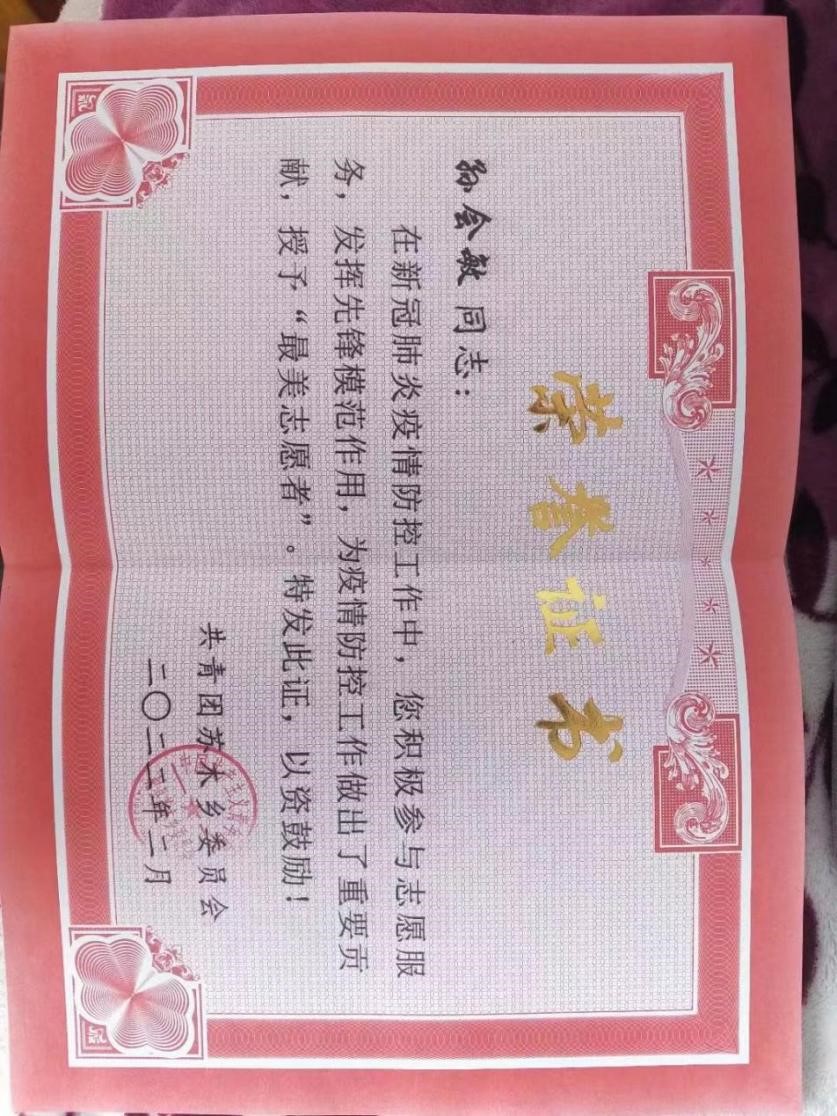 荣誉证书
孙会敏同志：
在新冠肺炎疫情防控工作中，您积极参与志愿服
务，发挥先锋模范作用，为疫情防控工作做出了重要贡
献，授予“最美志愿者”。特发此证，以资鼓励！
共青团苏木乡委员会
二〇二二年二月